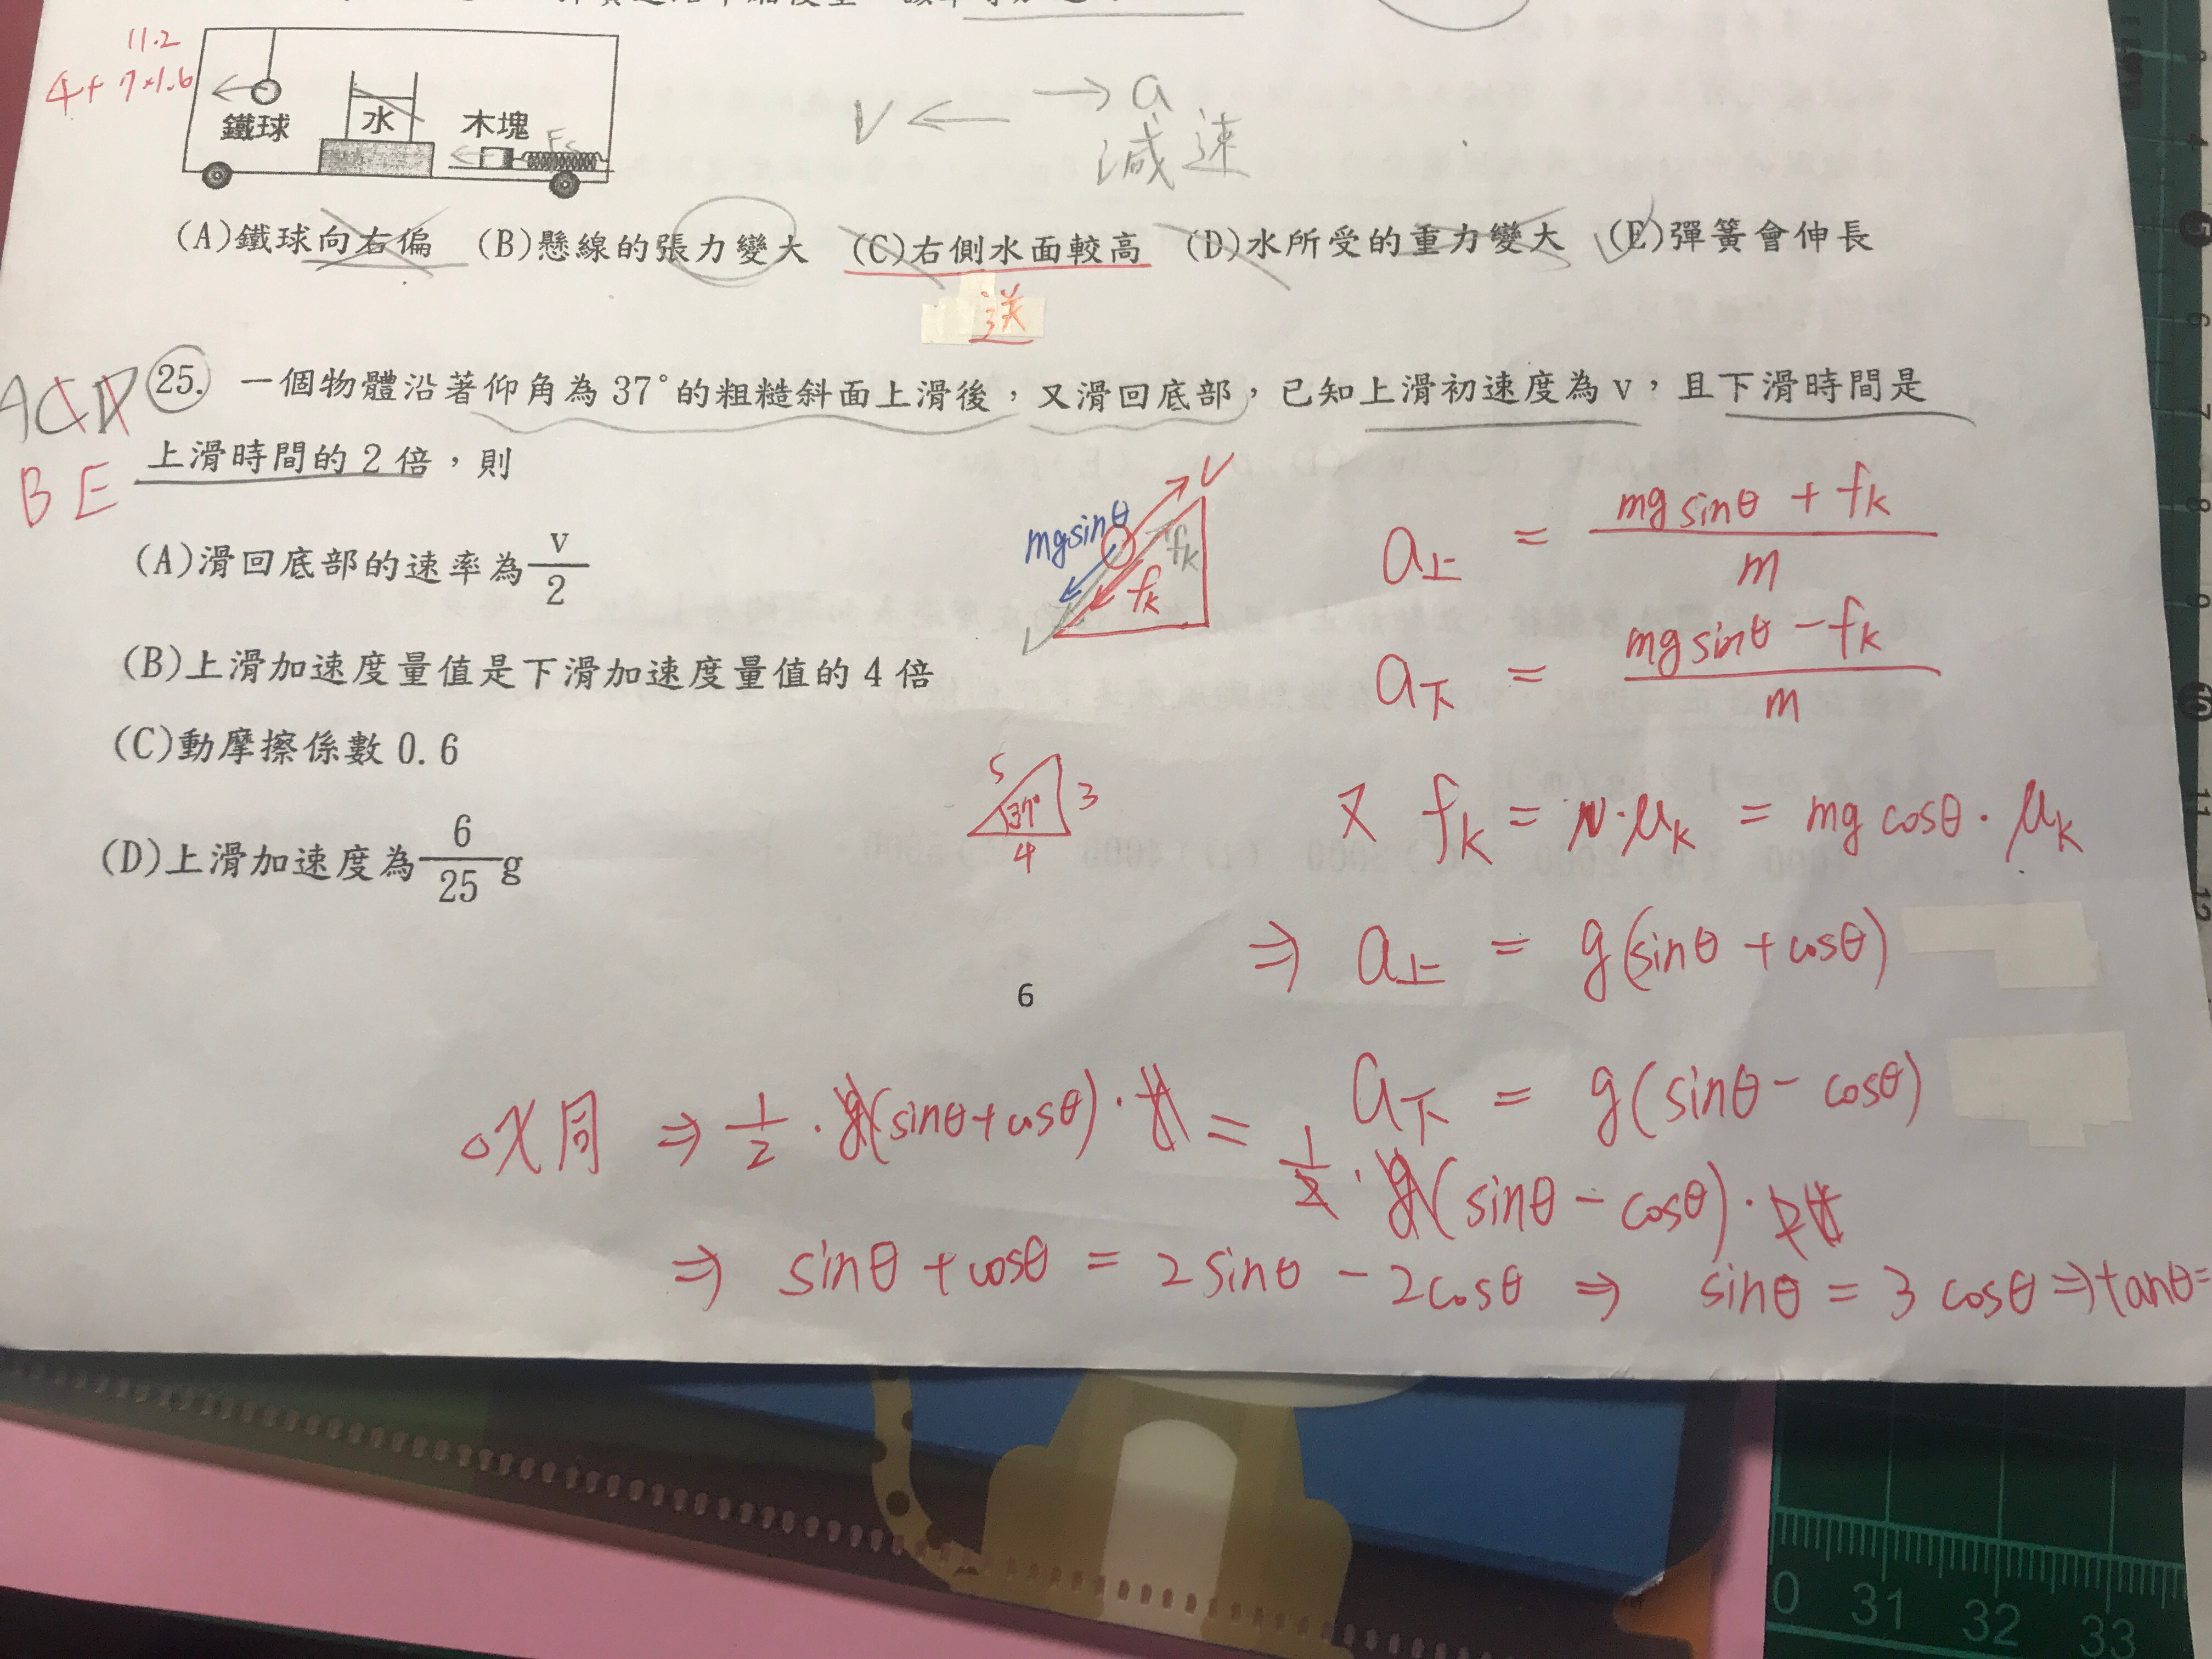 11.2
4+ 7×1.6
鐵球
水
木塊
Fs
V ← → a
減速
(A)鐵球向右偏 (B)懸線的張力變大 (C)右側水面較高 (D)水所受的重力變大 (E)彈簧會伸長
送
ACD 25. 一個物體沿著仰角為 37°的粗糙斜面上滑後，又滑回底部，已知上滑初速度為 v，且下滑時間是
BE 上滑時間的 2 倍，則
(A)滑回底部的速率為 v/2
(B)上滑加速度量值是下滑加速度量值的 4 倍
(C)動摩擦係數 0.6
(D)上滑加速度為 6/25 g
V
mgsinθ
fk
fk
V
a上 = (mg sinθ + fk)/m
a下 = (mg sinθ − fk)/m
5 3
37°
4
又 fk = N·μk = mg cosθ · μk
⇒ a上 = g(sinθ + cosθ)
6
a下 = g(sinθ − cosθ)
△X同 ⇒ 1/2 · g(sinθ + cosθ) · t =
1/2 · g(sinθ − cosθ) · 2t
⇒ sinθ + cosθ = 2sinθ − 2cosθ ⇒ sinθ = 3 cosθ ⇒ tanθ =
3
4
5
6
7
8
9
10
11
12
0 31 32 33